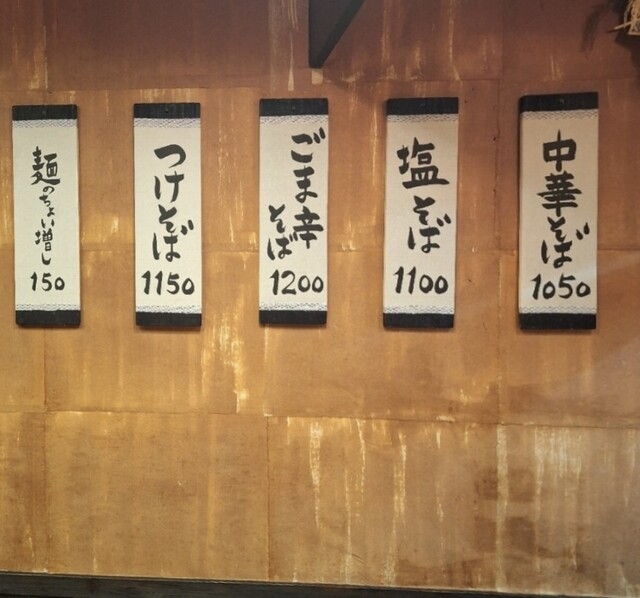 中華そば
1050
塩そば
1100
ごま辛
そば
1200
つけそば
1150
麺のちょい増し
150